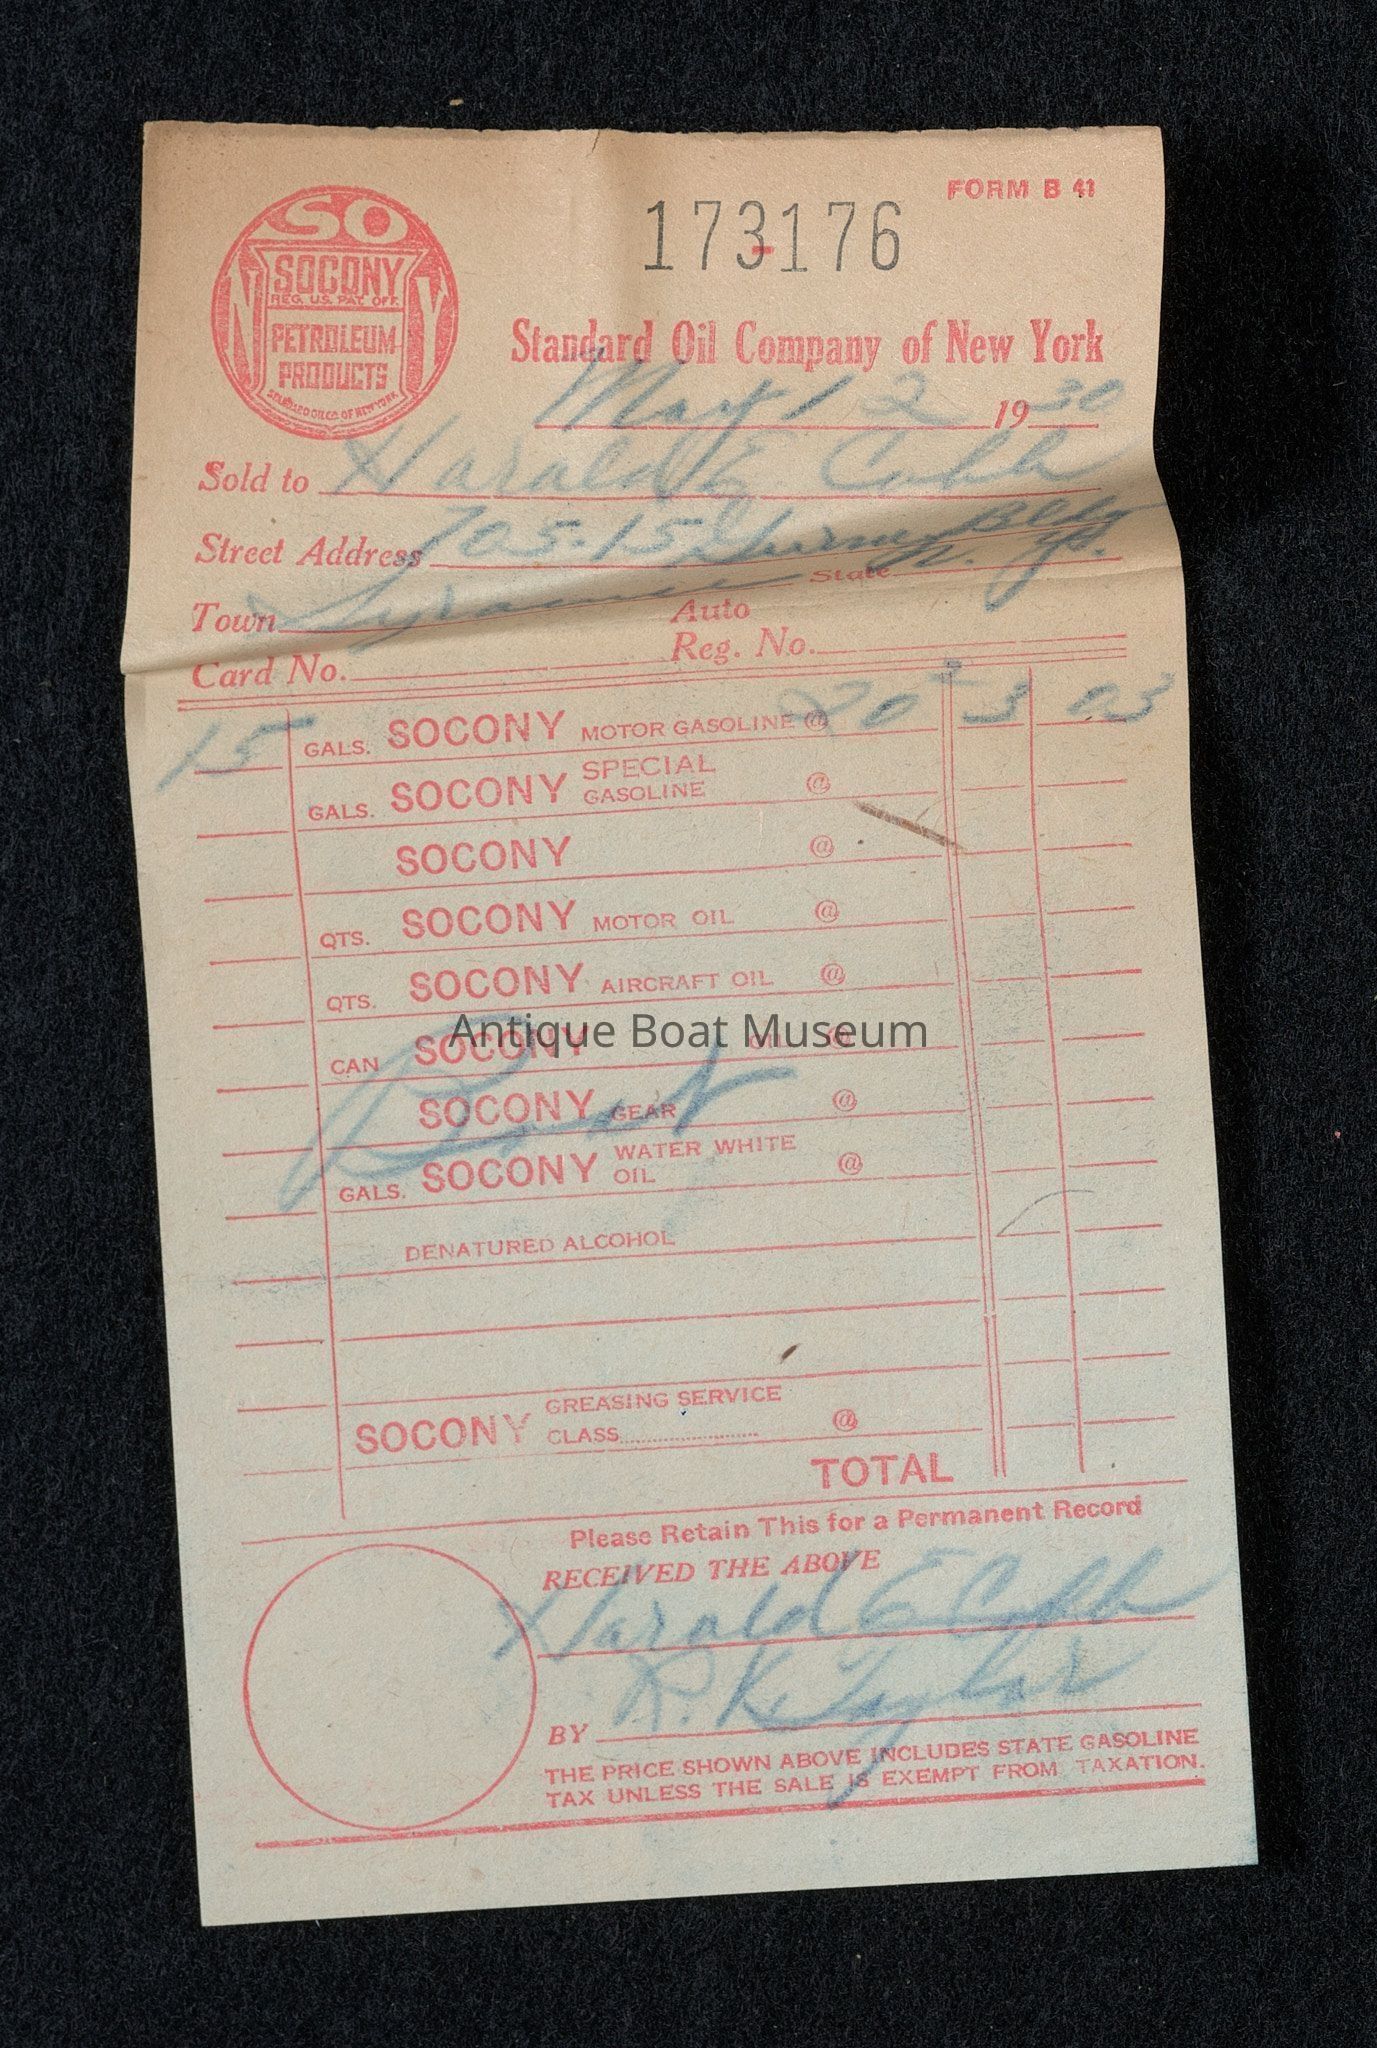 FORM B 41
173176
SO
SOCONY
REG. U.S. PAT. OFF.
PETROLEUM
PRODUCTS
STANDARD OIL CO. OF NEW YORK
Standard Oil Company of New York
May 12 1930
Sold to Harald E Cobb
Street Address 705-15 Gurney Bldg
Town Syracuse State N. Y.
Card No. Auto Reg. No.
15 GALS. SOCONY MOTOR GASOLINE @ 20² 3 03
GALS. SOCONY SPECIAL GASOLINE @
SOCONY @
QTS. SOCONY MOTOR OIL @
QTS. SOCONY AIRCRAFT OIL @
CAN SOCONY OIL @
Antique Boat Museum
SOCONY GEAR @
GALS. SOCONY WATER WHITE OIL @
DENATURED ALCOHOL
SOCONY GREASING SERVICE CLASS @
TOTAL
Please Retain This for a Permanent Record
RECEIVED THE ABOVE
Harald E Cobb
BY R. K. Taylor
THE PRICE SHOWN ABOVE INCLUDES STATE GASOLINE
TAX UNLESS THE SALE IS EXEMPT FROM TAXATION.